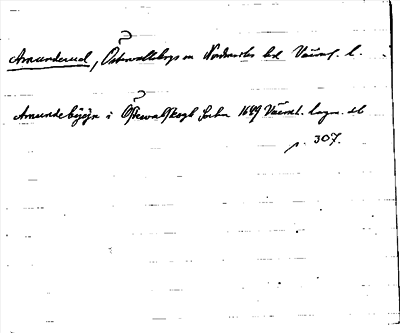 Amunderud, Östervallskogs sn Nordmarks hd Värml. l.
Amundebyggn i Östervalskogh Sochn 1649 Värml. lagm. db
p. 307.